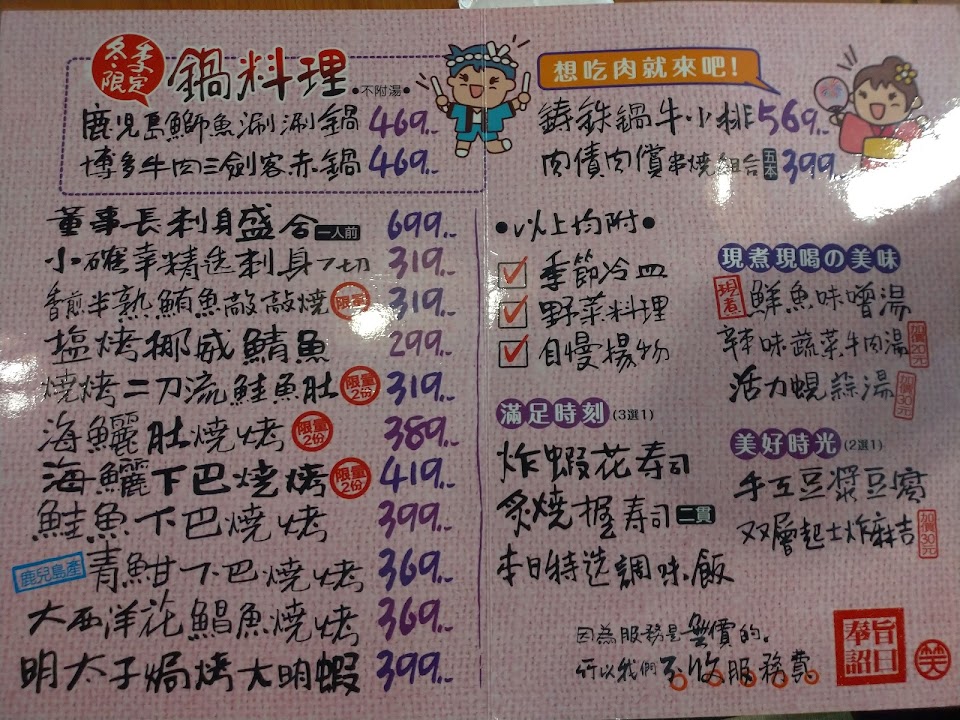 冬季・限定 鍋料理 ●不附湯●
鹿児島鰤魚涮涮鍋 469..
博多牛肉三劍客赤鍋 469..
董事長刺身盛合 一人前 699..
小確幸精选刺身7切 319..
香煎半熟鮪魚敲敲燒 限定 319..
塩烤挪威鯖魚 299..
燒烤二刀流鮭魚肚 限量2份 319..
海鱺肚燒烤 限量2份 389..
海鱺下巴燒烤 限量2份 419..
鮭魚下巴燒烤 399..
鹿兒島產 青魽下巴燒烤 369..
大西洋花鯧魚燒烤 369..
明太子焗烤大明蝦 399..
想吃肉就來吧!
鋳鉄鍋牛小排 569..
肉債肉償串燒組合 五本 399..
●以上均附●
季節冷皿
野菜料理
自慢揚物
滿足時刻 (3選1)
炸蝦花寿司
炙燒握寿司 二貫
本日特选調味飯
現煮現喝の美味
現煮 鮮魚味噌湯
辛味蔬菜牛肉湯 加價20元
活力蜆蒜湯 加價30元
美好時光 (2選1)
手工豆漿豆腐
双層起士炸麻吉 加價30元
因為服務是無價的。
所以我們不收服務費
奉旨日詔
笑